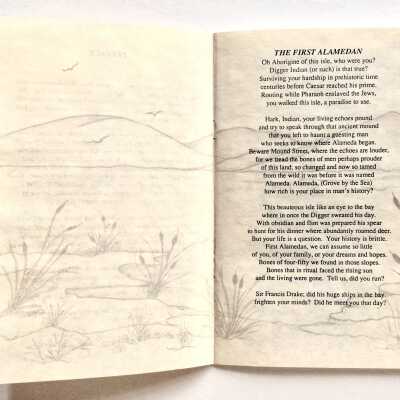 PREFACE
THE FIRST ALAMEDAN
Oh Aborigine of this isle, who were you?
Digger Indian (or such) is that true?
Surviving your hardship in prehistoric time
centuries before Caesar reached his prime.
Routing while Pharaoh enslaved the Jews,
you walked this isle, a paradise to use.
Hark, Indian, your living echoes pound
and try to speak through that ancient mound
that you left to haunt a guesting man
who seeks to know where Alameda began.
Beware Mound Street, where the echoes are louder,
for we tread the bones of men perhaps prouder
of this land, so changed and now so tamed
from the wild it was before it was named
Alameda. Alameda, (Grove by the Sea)
how rich is your place in man's history?
This beauteous isle like an eye to the bay
where in once the Digger sweated his day.
With obsidian and flint was prepared his spear
to hunt for his dinner where abundantly roamed deer.
But your life is a question. Your history is brittle.
First Alamedan, we can assume so little
of you, of your family, or your dreams and hopes.
Bones of four-fifty we found in those slopes.
Bones that in ritual faced the rising sun
and the living were gone. Tell us, did you run?
Sir Francis Drake; did his huge ships in the bay
frighten your minds? Did he meet you that day?